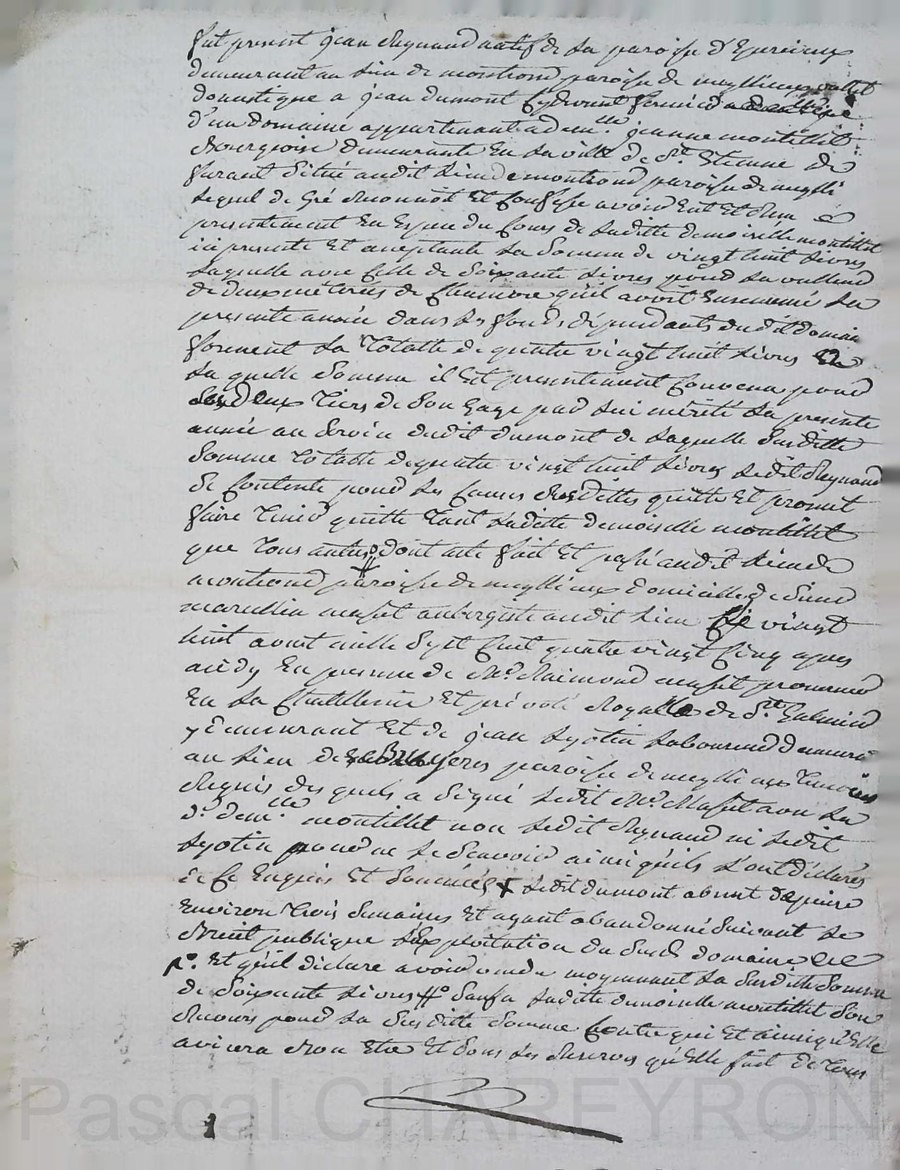 fut present jean Reynaud natif de la paroisse d'Epercieux
demeurant au lieu de montrond paroisse de meyllieux vallet
domestique a jean dumont cydevant fermier
d'un domaine appartenant a dem.lle jeanne montillet
Bourgeoise demeurante en la ville de St Etienne de
furant situé audit lieu de montrond paroisse de meylli
lequel de gré Reconnoit et Confesse avoir eut et Reçu
presentement en Espece du Cours de laditte demoiselle montillet
ici presente Et aceptante la somme de vingt huit livres
laquelle avec Celle de soixante livres pour la valleur
de deux meterées de Chanvre qu'il avoit Ensemencé la
presente année dans les fonds dépendants dudit domaine
forment la Totalle de quatre vingt huit livres
la quelle somme il Est presentement Convenu pour
les deux tiers de son gage par lui mérité la presente
année au service dudit dumont de laquelle susditte
somme totalle de quatre vingt huit livres ledit Reynaud
se Contente pour les Causes susdittes quitte et promet
faire tenir quitte tant laditte demoiselle montillet
que tous autres dont acte fait et passé audit lieu de
montrond paroisse de meyllieux domicille de sieur
marcellin massot aubergiste audit lieu le vingt
huit aoust mille sept Cent quatre vingt Cinq apres
midy En presence de Me Raimond massot procureur
En la Chatellenie et prévoté Royalle de St Galmier
y demeurant Et de jean Lyotin laboureur demeurant
au lieu de Bruyeres paroisse de meyllieux temoins
Requis des quels a signé ledit Me Massot avec la
d. dem.lle montillet non ledit Reynaud ni ledit
Lyotin pour ne le scavoir ainsi qu'ils l'ont déclarés
de Ce Enquis Et sommés + ledit dumont absent depuis
Environ trois semaines Et ayant abandonné suivant le
bruit publique l'Exploitation du susd. domaine
Et qu'il déclare avoir vendu moyennant la susditte somme
de soixante livres # sauf a laditte demoiselle montillet son
Recours pour la susditte somme Contre qui Et ainsi qu'Elle
avisera Bon Etre Et sous les Reserves qu'Elle fait de tous
Pascal CHAREYRON